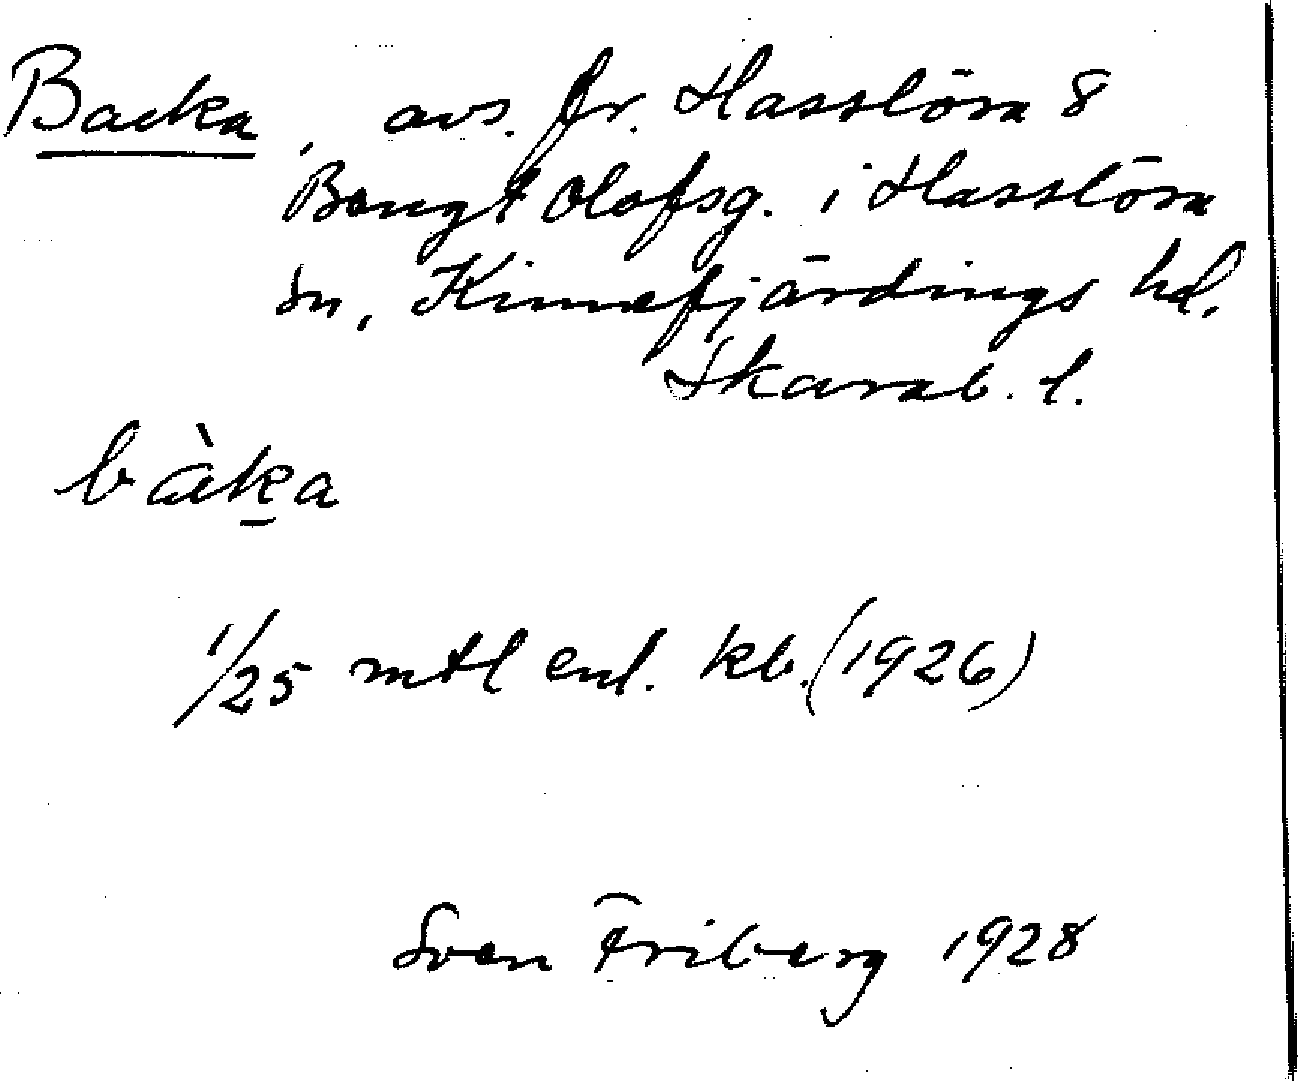 Backa, avs. fr. Hasslösa 8
Bengt Olofsg. i Hasslösa
sn, Kinnefjärdings hd.
Skarab. l.
bàka
1/25 mtl enl. kb. (1926)
Sven Friberg 1928